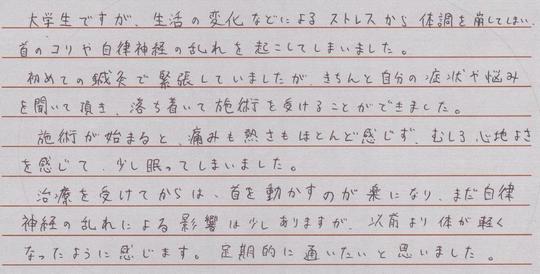 大学生ですが、生活の変化などによるストレスから体調を崩してしまい、
首のコリや自律神経の乱れを起こしてしまいました。
初めての鍼灸で緊張していましたが、きちんと自分の症状や悩み
を聞いて頂き、落ち着いて施術を受けることができました。
施術が始まると、痛みも熱さもほとんど感じず、むしろ心地よさ
を感じて、少し眠ってしまいました。
治療を受けてからは、首を動かすのが楽になり、まだ自律
神経の乱れによる影響は少しありますが、以前より体が軽く
なったように感じます。定期的に通いたいと思いました。